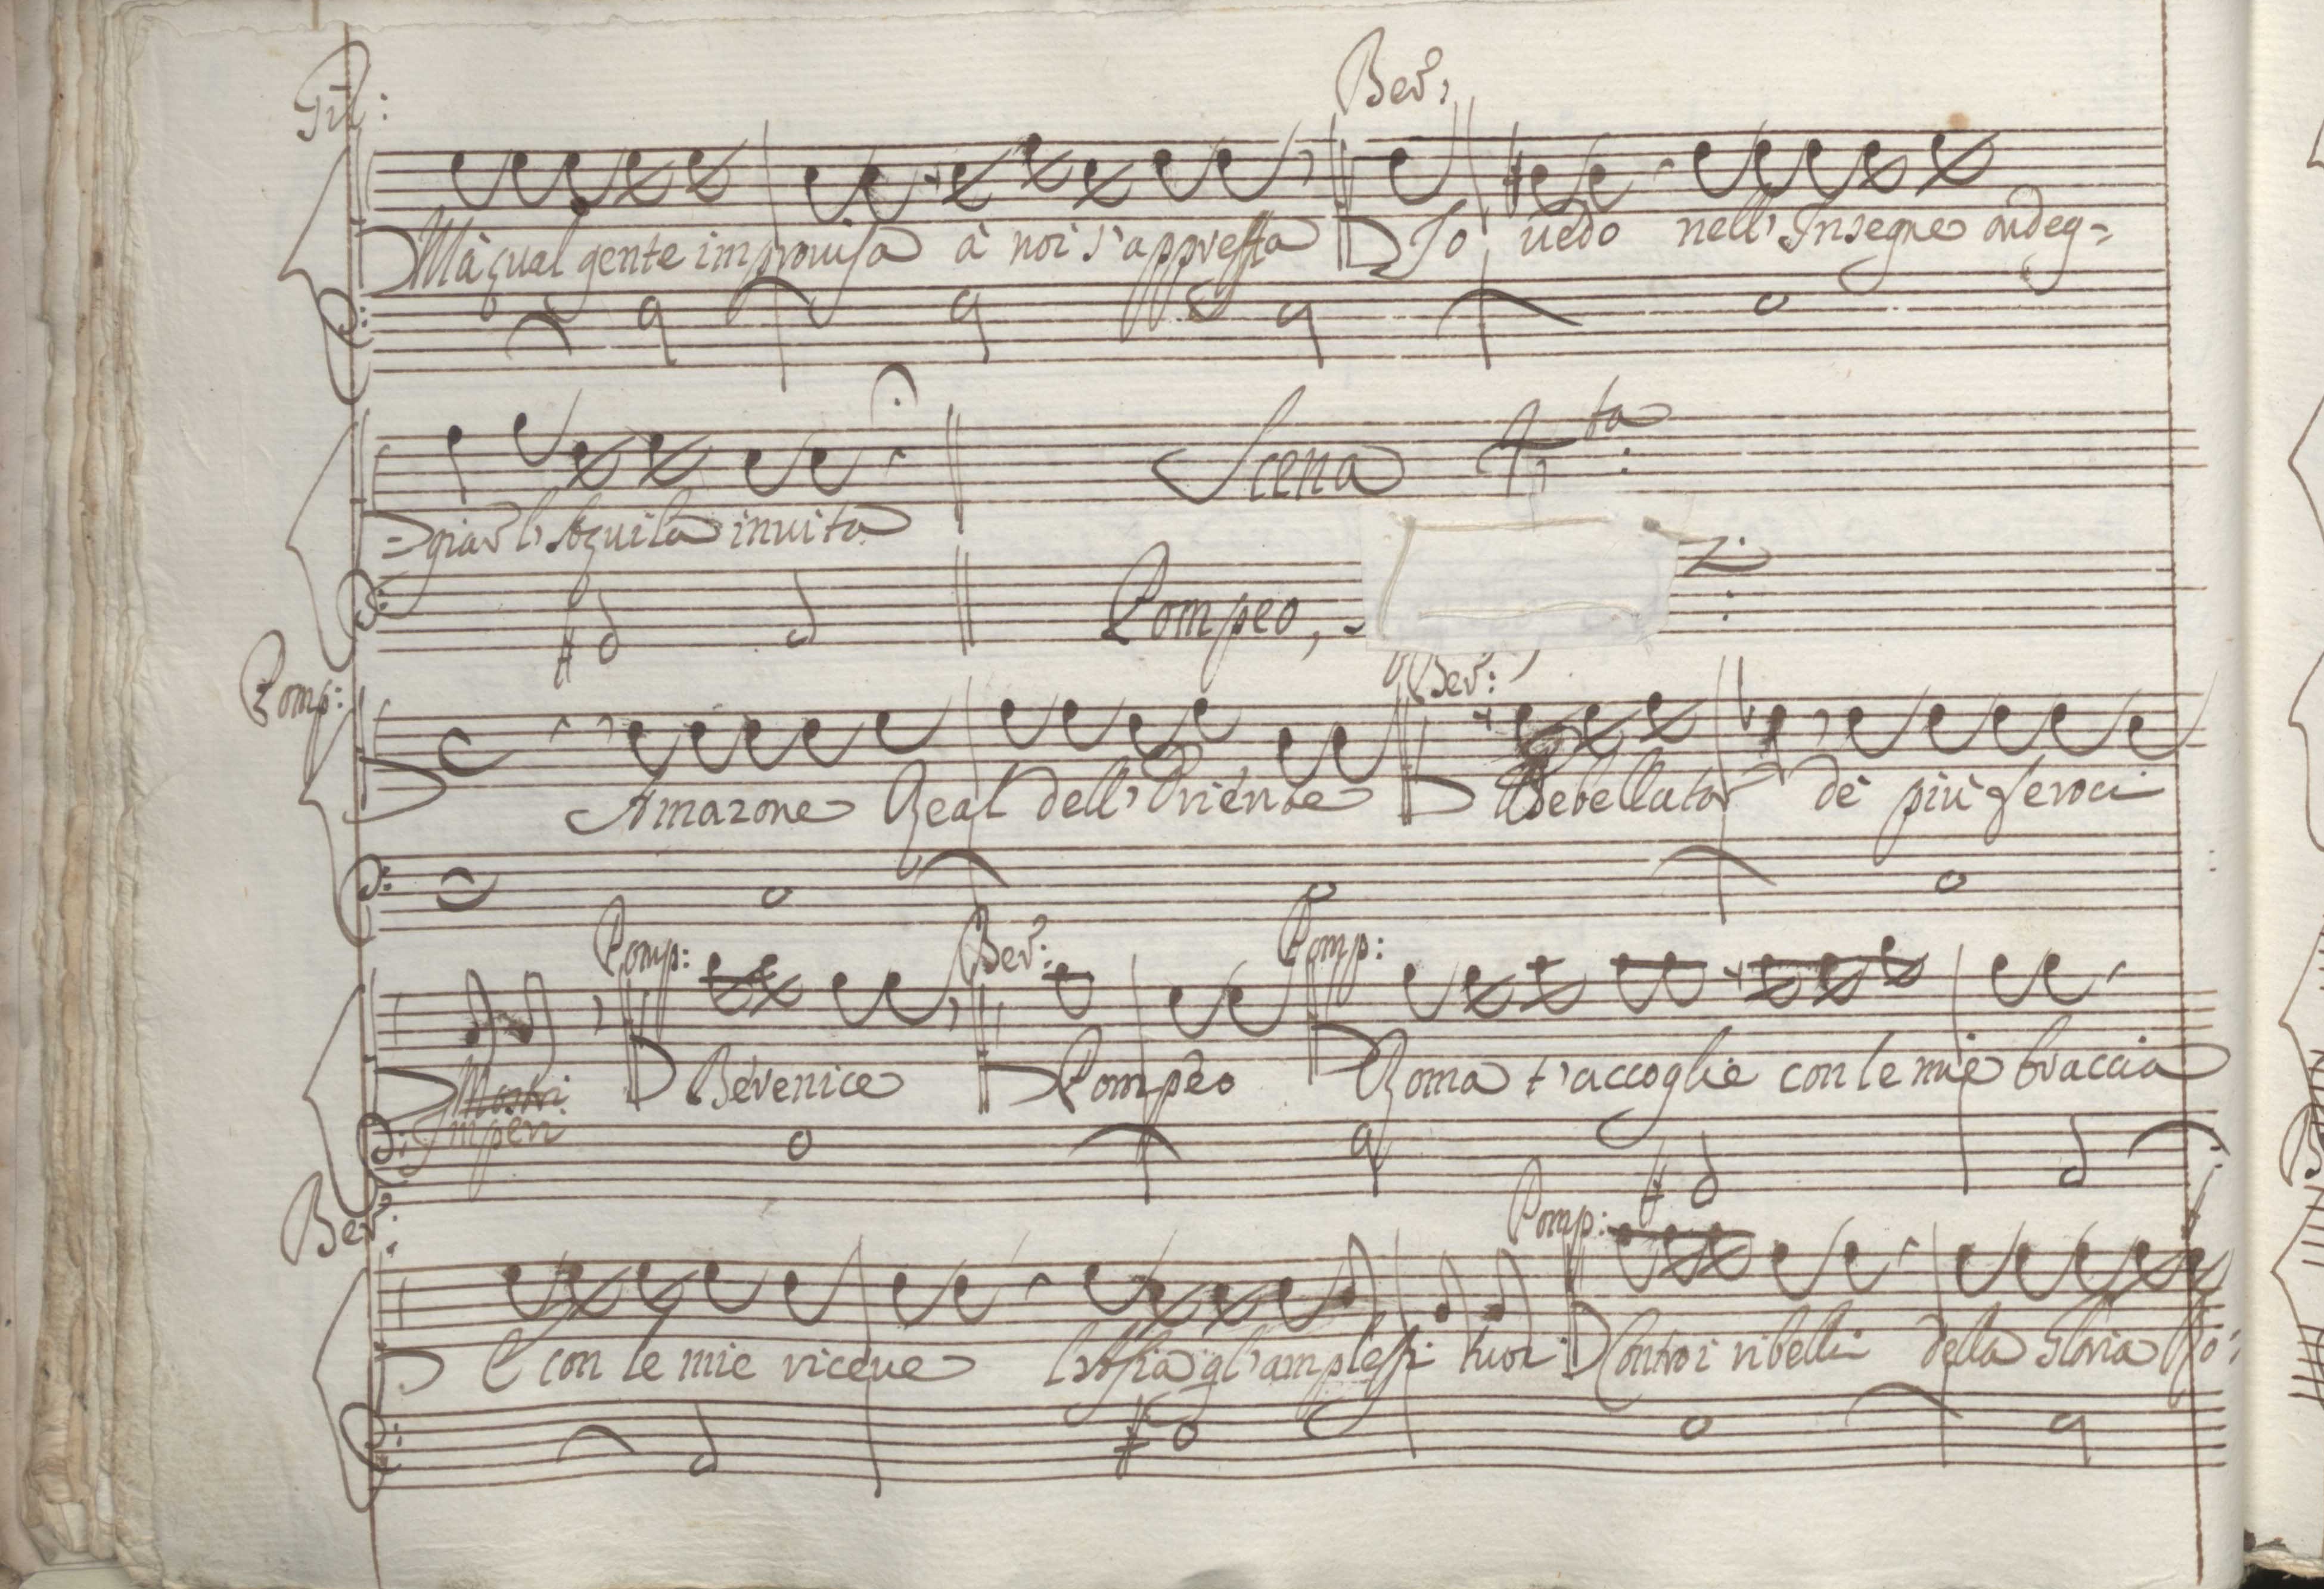 Ber:
Mà qual gente improuisa à noi s'appressa Io uedo nell'Insegne ondeg=
Scena 4ta:
=giar l'Aquila inuita
Pompeo,
Pomp: Ber:
Amazone Real dell'Oriente Debellator de più feroci
Pomp: Ber: Pomp:
Mostri Berenice Pompeo Roma t'accoglie con le mie braccia
Imperi
Ber: Pomp:
E con le mie riceue l'Asia gl'amplessi tuoi Contro i ribelli della Gloria